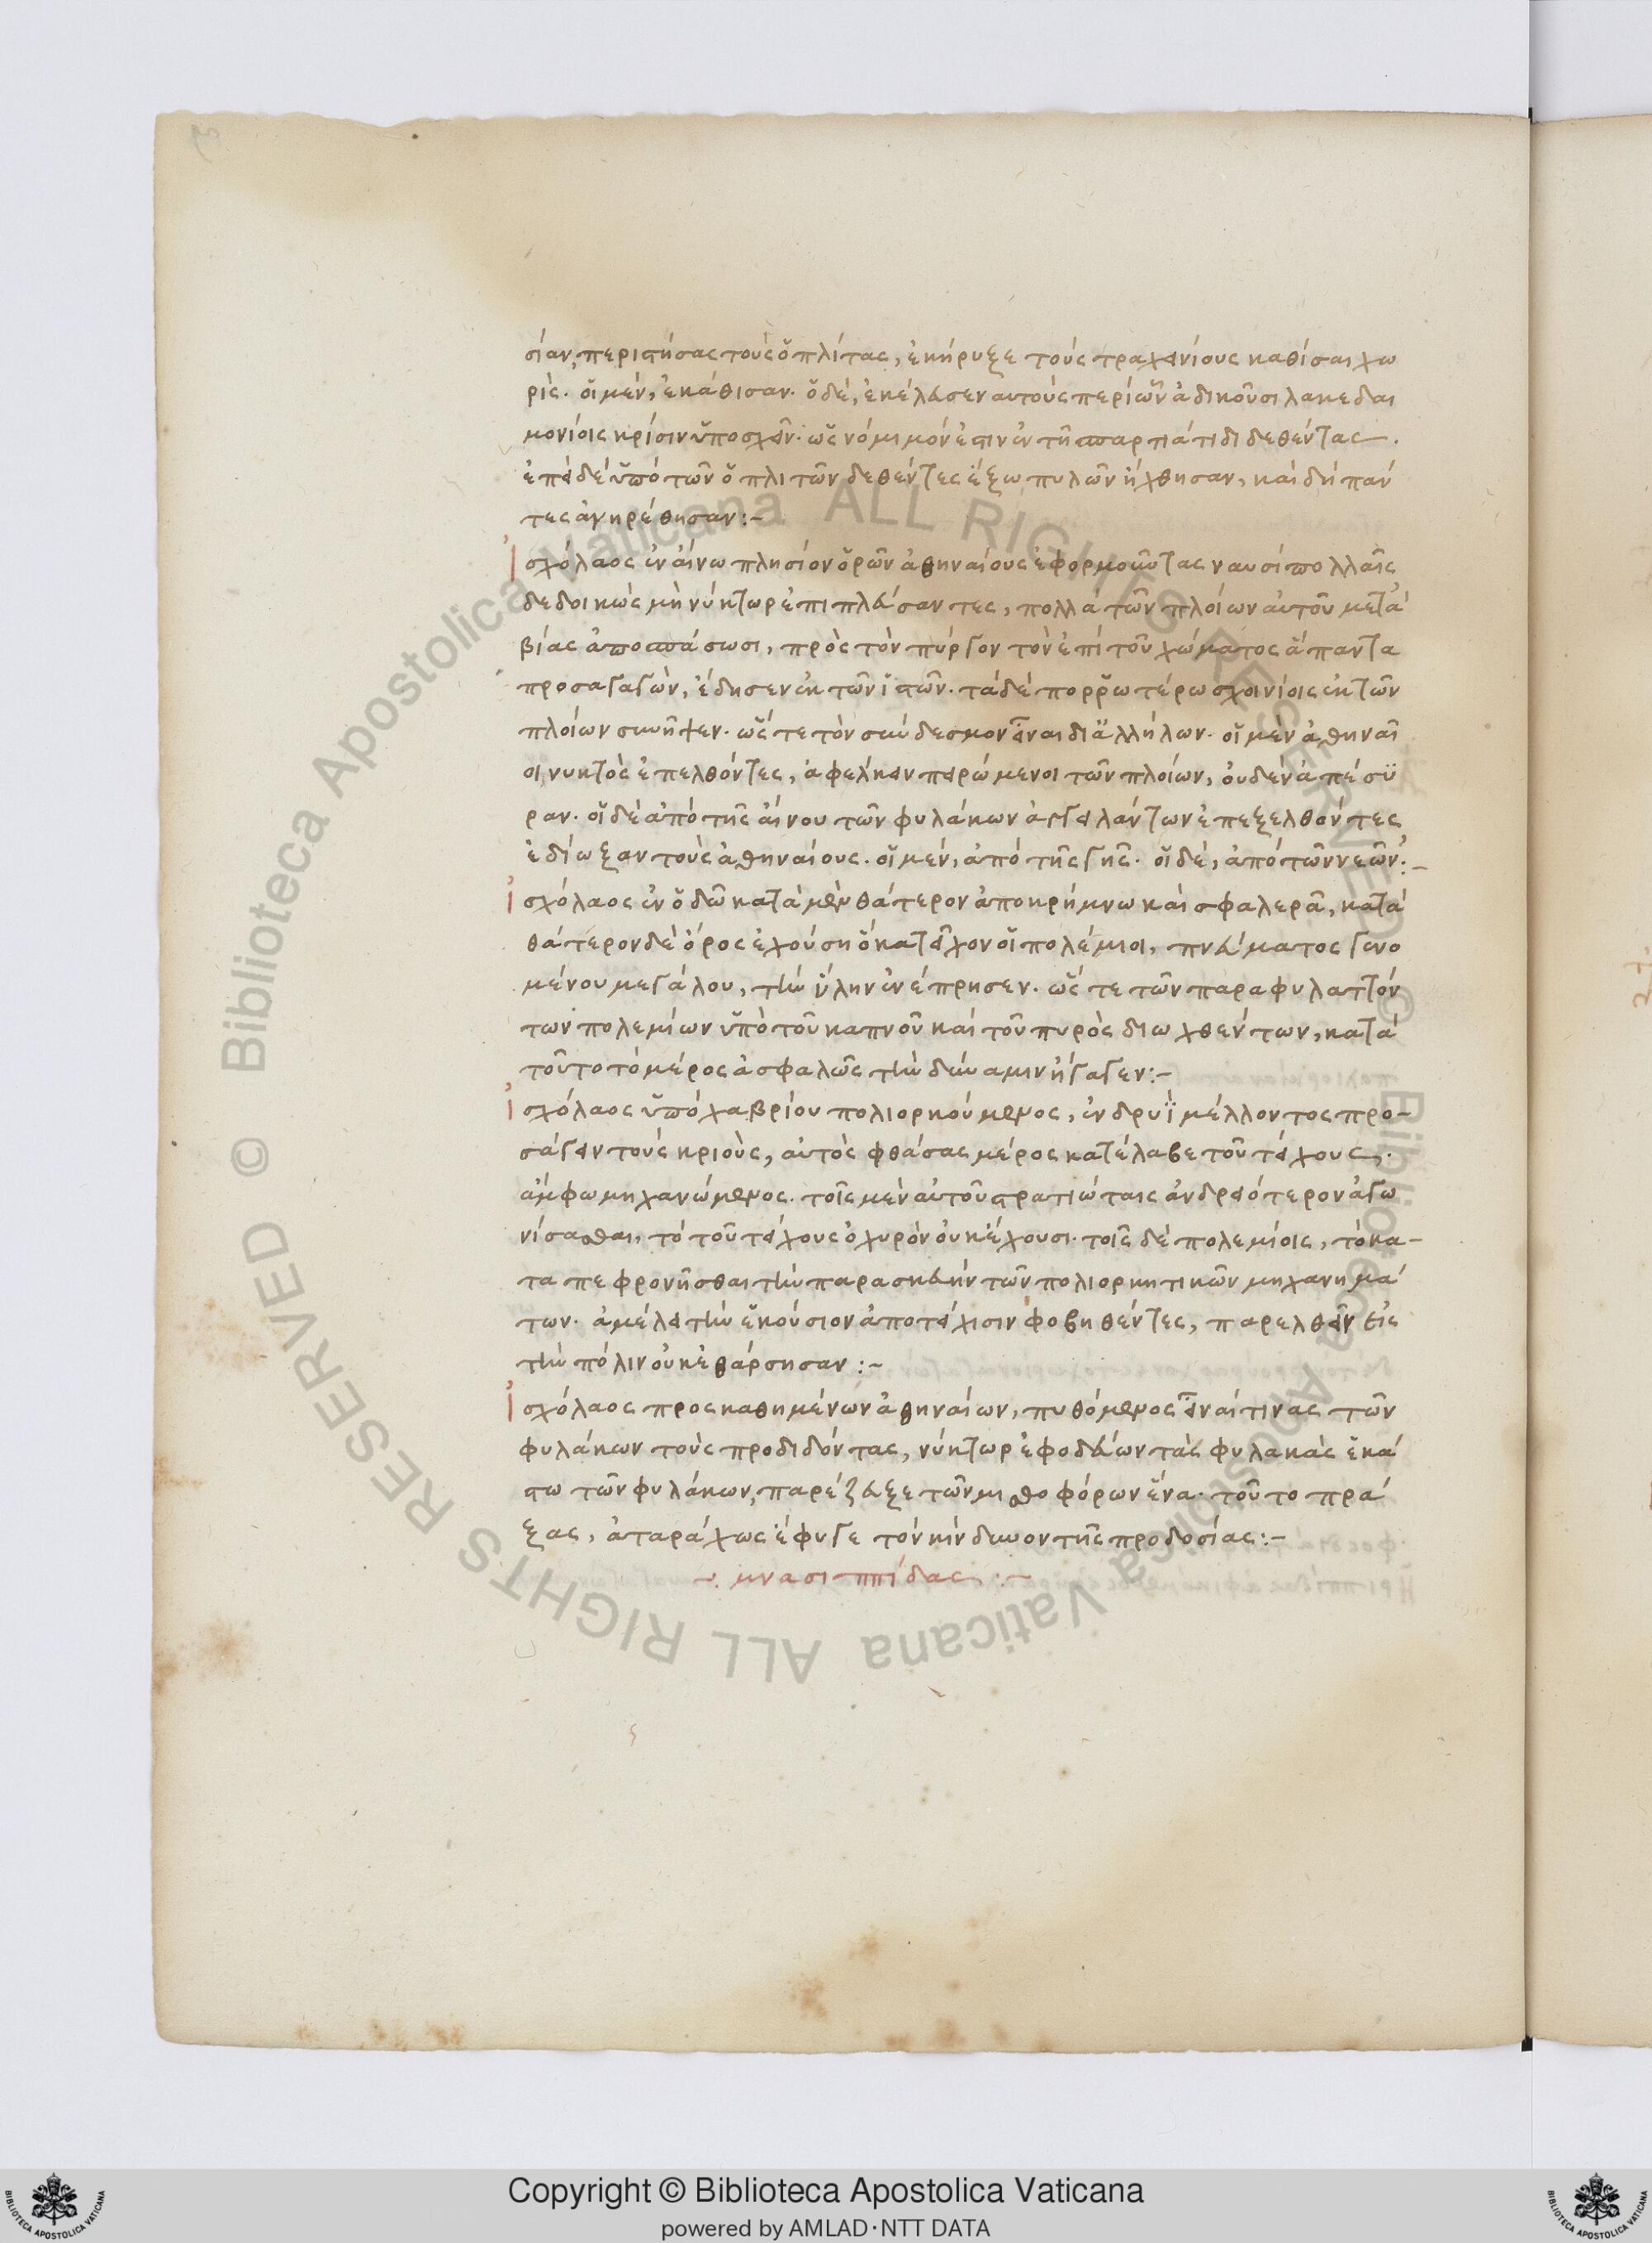 σίαν, περιστήσας τοὺς ὁπλίτας, ἐκήρυξε τοὺς τραχεινίους καθίσαι χω
ρίς. οἱ μὲν, ἐκάθισαν. ὁ δὲ, ἐκέλευσεν αὐτοὺς περὶ ὧν ἀδικοῦσι λακεδαι
μονίοις κρίσιν ὑποσχεῖν. ὡς νόμιμόν ἐστιν ἐν τῇ σπαρτιάτιδι δεθέντας.
ἐπεὶ δὲ ὑπὸ τῶν ὁπλιτῶν δεθέντες ἔξω πυλῶν ἤχθησαν, καὶ δὴ πάν
τες ἀνηρέθησαν:-
Ἰσχόλαος ἐν αἴνω πλησίον ὁρῶν ἀθηναίους ἐφορμοῦντας ναυσὶ πολλαῖς
δεδοικὼς μὴ νύκτωρ ἐπιπλεύσαντες, πολλὰ τῶν πλοίων αὐτοῦ μετὰ
βίας ἀποσπάσωσι, πρὸς τὸν πύργον τὸν ἐπὶ τοῦ χώματος ἅπαντα
προσαγαγὼν, ἔδησεν ἐκ τῶν ἱστῶν. τὰ δὲ πορρωτέρω σχοινίοις ἐκ τῶν
πλοίων συνῆψεν. ὥστε τὸν σύνδεσμον εἶναι δι' ἀλλήλων. οἱ μὲν ἀθηναῖ
οι νυκτὸς ἐπελθόντες, ἀφέλκειν πειρώμενοι τῶν πλοίων, οὐδὲν ἀπέσυ
ραν. οἱ δὲ ἀπὸ τῆς αἴνου τῶν φυλάκων ἀγγειλάντων ἐπεξελθόντες
ἐδίωξαν τοὺς ἀθηναίους. οἱ μὲν, ἀπὸ τῆς γῆς. οἱ δὲ, ἀπὸ τῶν νεῶν:-
Ἰσχόλαος ἐν ὁδῶ κατὰ μὲν θάτερον ἀποκρήμνω καὶ σφαλερᾶ, κατὰ
θάτερον δὲ ὄρος ἐχούση ὃ κατεῖχον οἱ πολέμιοι, πνεύματος γενο
μένου μεγάλου, τὴν ὕλην ἐνέπρησεν. ὥστε τῶν παραφυλαττόν
των πολεμίων ὑπὸ τοῦ καπνοῦ καὶ τοῦ πυρὸς διωχθέντων, κατὰ
τοῦτο τὸ μέρος ἀσφαλῶς τὴν δύναμιν ἤγαγεν:-
Ἰσχόλαος ὑπὸ χαβρίου πολιορκούμενος, ἐν δρυῒ μέλλοντος προ-
σάγειν τοὺς κριοὺς, αὐτὸς φθάσας μέρος κατέλαβε τοῦ τείχους.
ἄμφω μηχανώμενος. τοῖς μὲν αὐτοῦ στρατιώταις ἀνδρειότερον ἀγω
νίσασθαι, τὸ τοῦ τείχους ὀχυρὸν οὐκ ἔχουσι. τοῖς δὲ πολεμίοις, τὸ κα-
ταπεφρονῆσθαι τὴν παρασκευὴν τῶν πολιορκητικῶν μηχανημά
των. ἀμέλει τὴν ἑκούσιον ἀποτείχισιν φοβηθέντες, παρελθεῖν εἰς
τὴν πόλιν οὐκ ἐθάρσησαν:-
Ἰσχόλαος προσκαθημένων ἀθηναίων, πυθόμενος εἶναί τινας τῶν
φυλάκων τοὺς προδιδόντας, νύκτωρ ἐφοδεύων τὰς φυλακὰς ἑκά
στω τῶν φυλάκων, παρέζευξε τῶν μισθοφόρων ἕνα. τοῦτο πρά
ξας, ἀταράχως ἔφυγε τὸν κίνδυνον τῆς προδοσίας:-
μνασιππίδας:-
© Biblioteca Apostolica Vaticana ALL RIGHTS RESERVED © Biblioteca Apostolica Vaticana ALL RIGHTS RESERVED
Copyright © Biblioteca Apostolica Vaticana
powered by AMLAD·NTT DATA
BIBLIOTECA APOSTOLICA VATICANA
BIBLIOTECA APOSTOLICA VATICANA